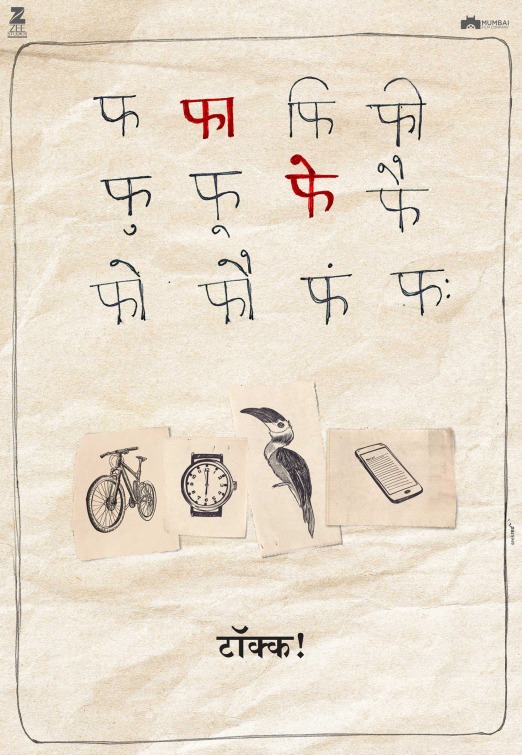 ZEE
STUDIOS
MUMBAI
FILM COMPANY
फ फा फि फी
फु फू फे फै
फो फौ फं फः
टॉक्क!